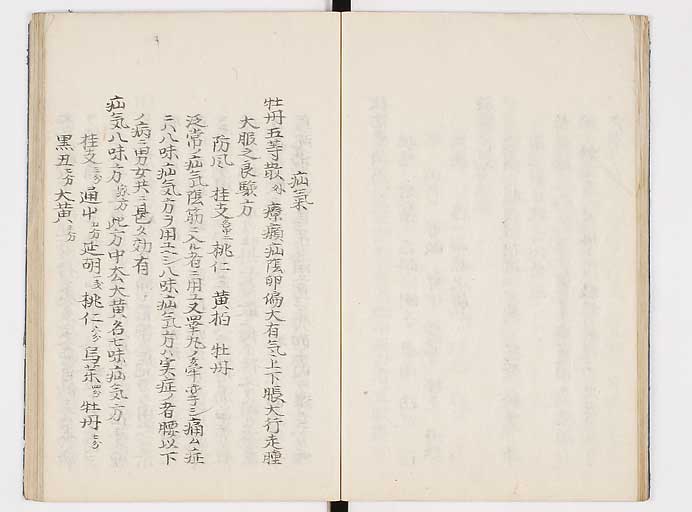 疝氣
牡丹五等散 療㿉疝陰卵偏大有氣上下脹大行走腫
大服之良験方
防风 桂支 桃仁 黄柏 牡丹
泛常ノ疝気陰筋ニ入ル者ニ用ユ又睾丸ノ牽シ痛ム症
ニハ八味疝気方ヲ用ユベシ八味疝気方ハ実症ノ者腰以下
ノ病ニ男女共ニ甚タ効有
疝気八味方 此方中去大黄名七味疝気方
桂支 通中 延胡 桃仁 烏茱 牡丹
黒丑 大黄